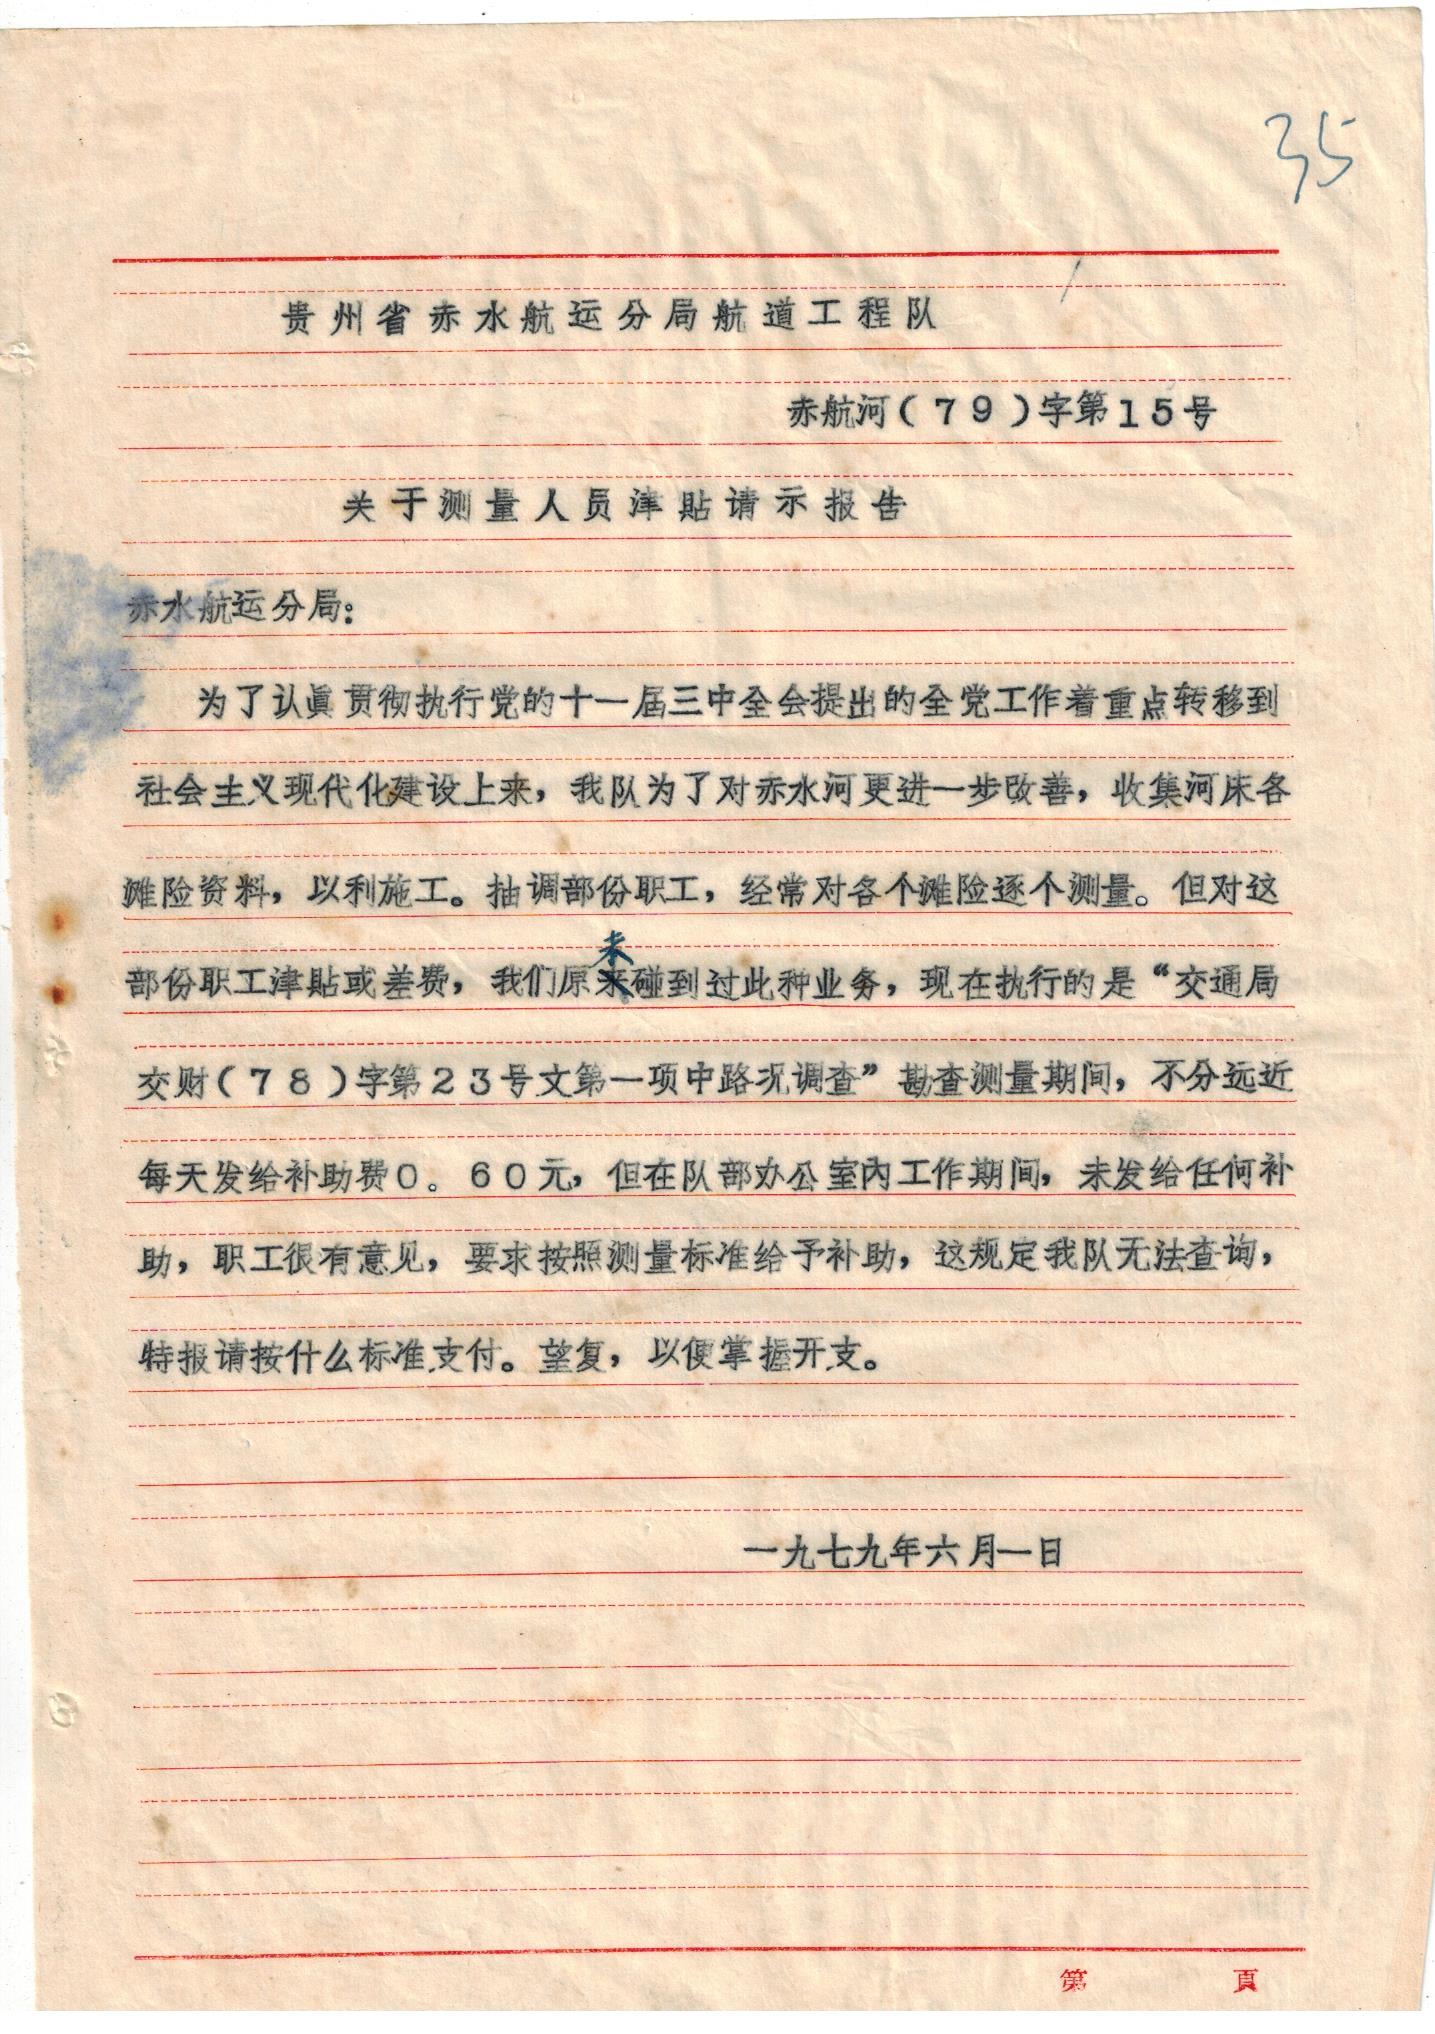 35
贵州省赤水航运分局航道工程队
赤航河(79)字第15号
关于测量人员津贴请示报告
赤水航运分局：
为了认真贯彻执行党的十一届三中全会提出的全党工作着重点转移到
社会主义现代化建设上来，我队为了对赤水河更进一步改善，收集河床各
滩险资料，以利施工。抽调部份职工，经常对各个滩险逐个测量。但对这
未
部份职工津贴或差费，我们原来碰到过此种业务，现在执行的是“交通局
交财(78)字第23号文第一项中路况调查”勘查测量期间，不分远近
每天发给补助费0。60元，但在队部办公室内工作期间，未发给任何补
助，职工很有意见，要求按照测量标准给予补助，这规定我队无法查询，
特报请按什么标准支付。望复，以便掌握开支。
一九七九年六月一日
第 頁